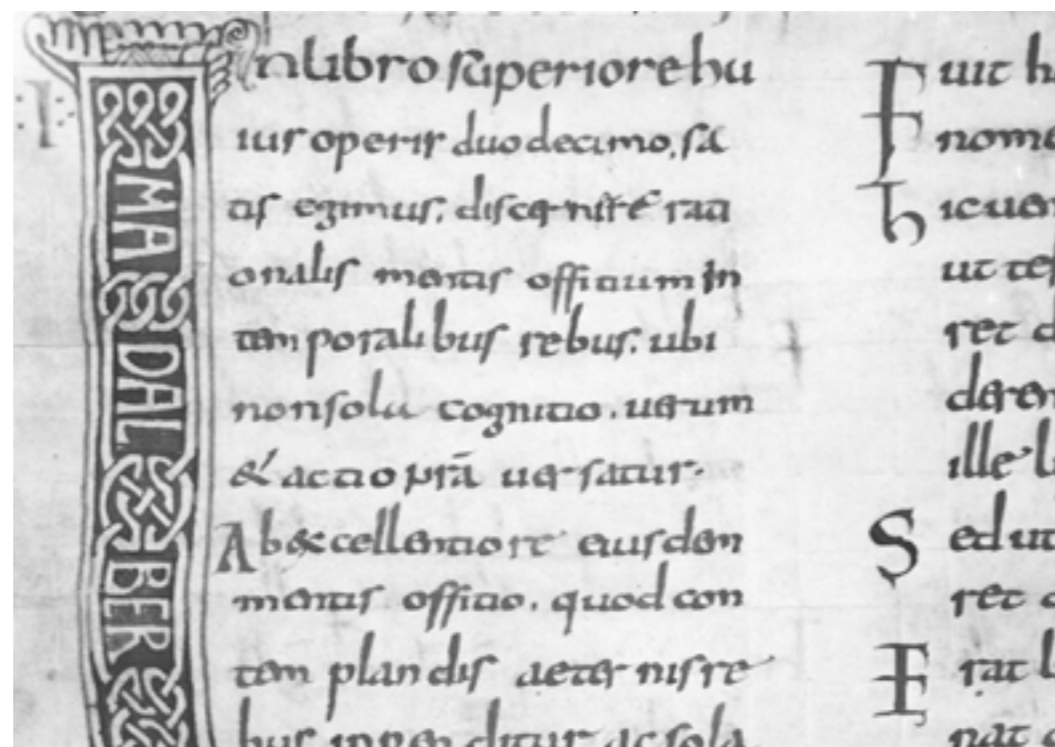 MADALBER
In libro superiore hu
ius operis duodecimo, sa
tis egimus, discernere rati
onalis mentis officium in
temporalibus rebus, ubi
non sola cognitio, uerum
& actio nrā uersatur.
Ab excellentiore eiusdem
mentis officio, quod con
templandis aeternis re
bus inpenditur ac sola
Fuit h
nome
hic uen
ut tes
ret d
deren
ille l
Sed ut
ret d
Erat l
nat o